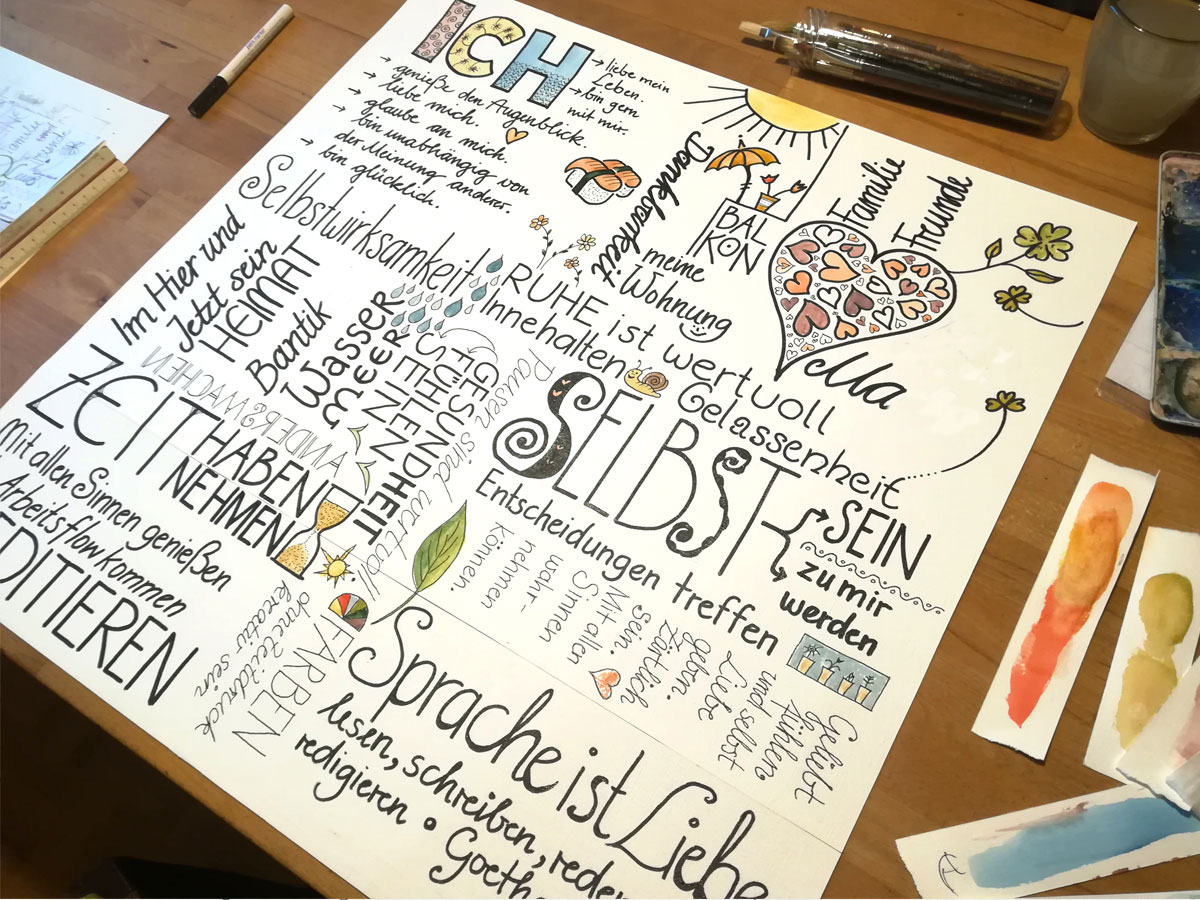 ICH
→ liebe mein
Leben.
→ bin gern
mit mir.
→ genieße den Augenblick.
→ liebe mich.
→ glaube an mich.
→ bin unabhängig von
der Meinung anderer.
→ bin glücklich.
Dankbarkeit
BAL
KON
meine
Wohnung
Familie
Freunde
Ma
Selbstwirksamkeit
RUHE ist wertvoll
Innehalten
Gelassenheit
Im Hier und
Jetzt sein
HEIMAT
Bantik
Wasser
Meer
GESUNDHEIT
Pausen sind wertvoll
SELBST
SEIN
zu mir
werden
Entscheidungen treffen
ZEIT HABEN
NEHMEN
Mit allen Sinnen genießen
Arbeitsflow kommen
DITIEREN
Mit allen
Sinnen
wahr-
nehmen
können.
Geliebt
fühlen
und selbst
Liebe
geben.
Zärtlich
sein.
FARBEN
kreativ sein
Sprache ist Liebe
lesen, schreiben, reden
redigieren • Goethe